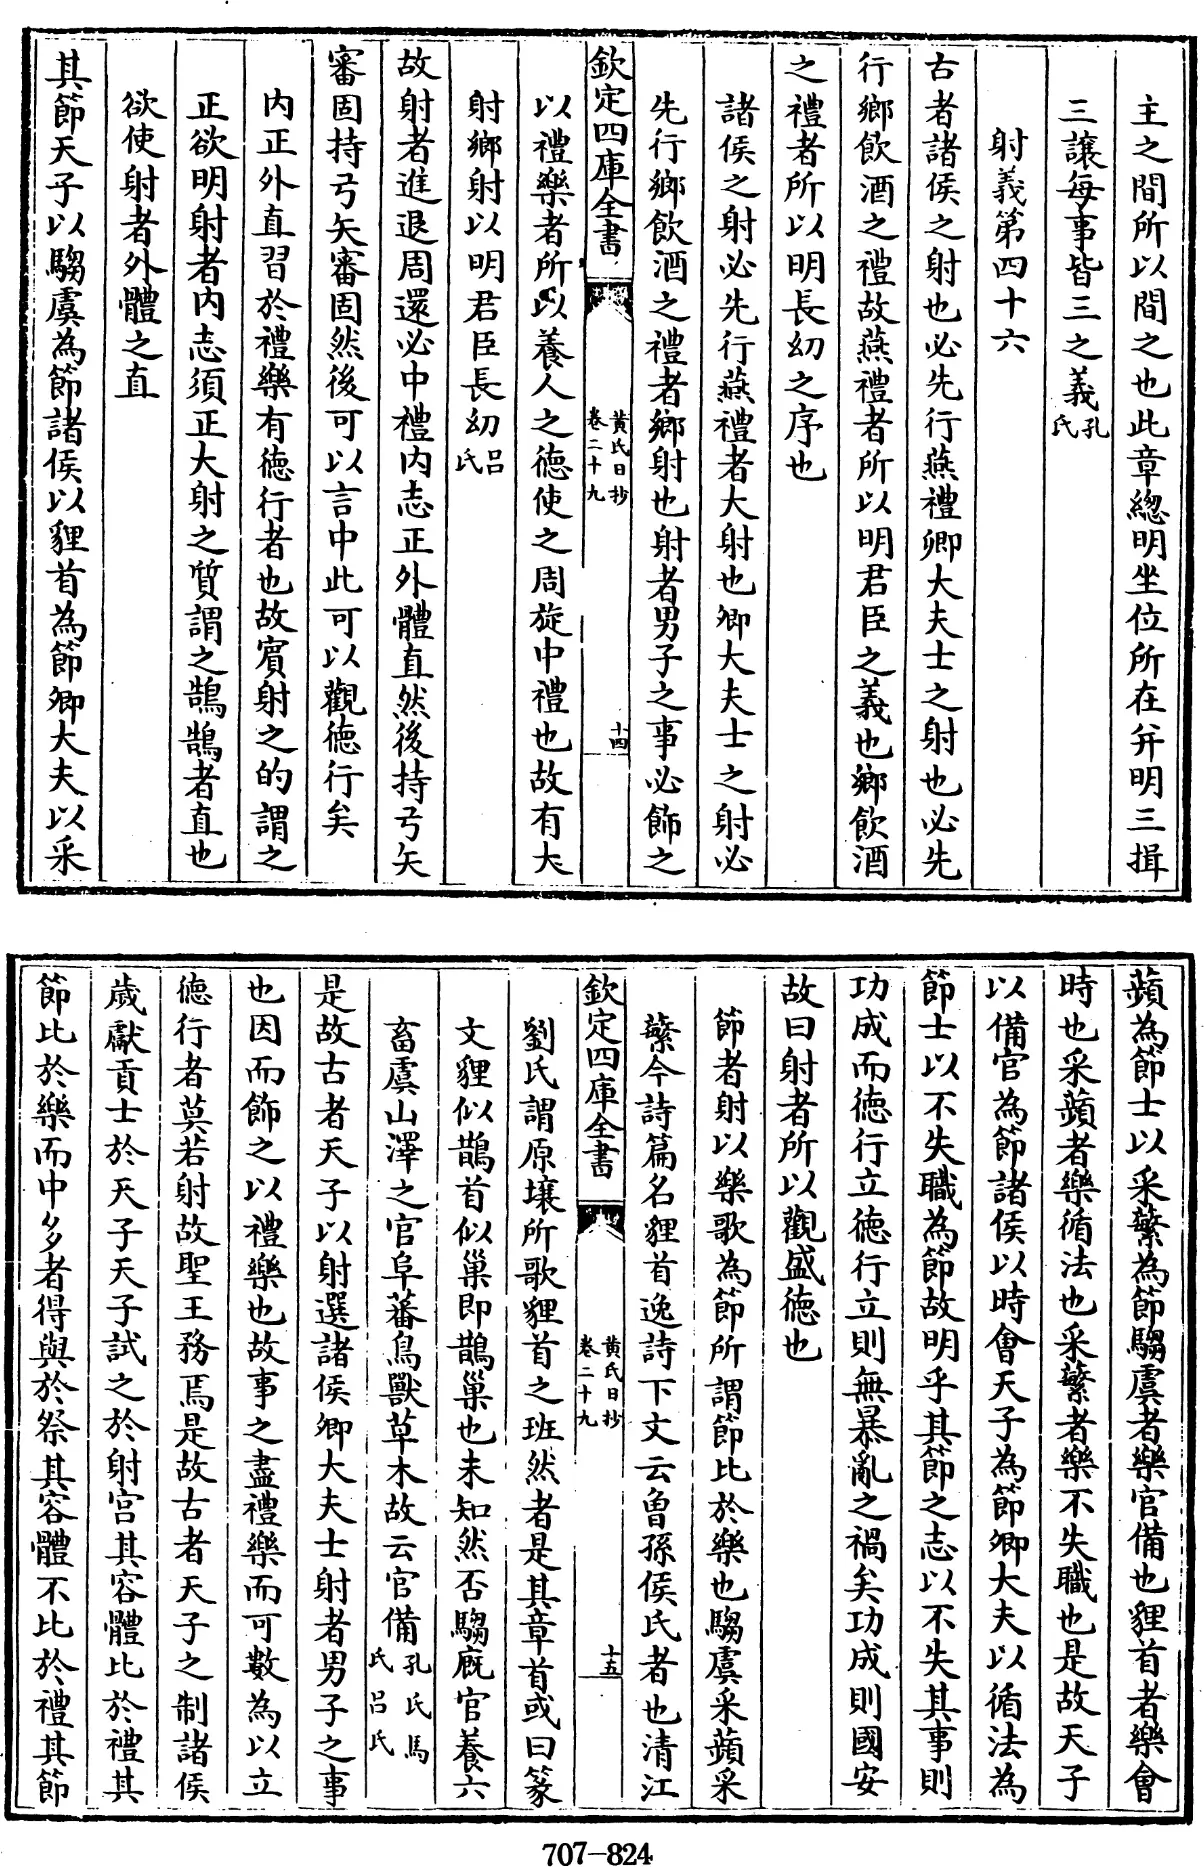 主之間所以間之也此章總明坐位所在并明三揖
三讓每事皆三之義孔氏
射義第四十六
古者諸侯之射也必先行燕禮卿大夫士之射也必先
行鄉飲酒之禮故燕禮者所以明君臣之義也鄉飲酒
之禮者所以明長幼之序也
諸侯之射必先行燕禮者大射也卿大夫士之射必
先行鄉飲酒之禮者鄉射也射者男子之事必飾之
欽定四庫全書
黃氏日抄
卷二十九
十四
以禮樂者所以養人之德使之周旋中禮也故有大
射鄉射以明君臣長幼呂氏
故射者進退周還必中禮内志正外體直然後持弓矢
審固持弓矢審固然後可以言中此可以觀德行矣
内正外直習於禮樂有德行者也故賓射之的謂之
正欲明射者内志須正大射之質謂之鵠鵠者直也
欲使射者外體之直
其節天子以騶虞為節諸侯以貍首為節卿大夫以采
蘋為節士以采蘩為節騶虞者樂官備也貍首者樂會
時也采蘋者樂循法也采蘩者樂不失職也是故天子
以備官為節諸侯以時會天子為節卿大夫以循法為
節士以不失職為節故明乎其節之志以不失其事則
功成而德行立德行立則無暴亂之禍矣功成則國安
故曰射者所以觀盛德也
節者射以樂歌為節所謂節比於樂也騶虞采蘋采
蘩今詩篇名貍首逸詩下文云魯孫侯氏者也清江
欽定四庫全書
黃氏日抄
卷二十九
十五
劉氏謂原壤所歌貍首之班然者是其章首或曰篆
文貍似鵲首似巢即鵲巢也未知然否騶廐官養六
畜虞山澤之官阜蕃鳥獸草木故云官備孔氏馬氏呂氏
是故古者天子以射選諸侯卿大夫士射者男子之事
也因而飾之以禮樂也故事之盡禮樂而可數為以立
德行者莫若射故聖王務焉是故古者天子之制諸侯
歲獻貢士於天子天子試之於射宫其容體比於禮其
節比於樂而中多者得與於祭其容體不比於禮其節
707-824